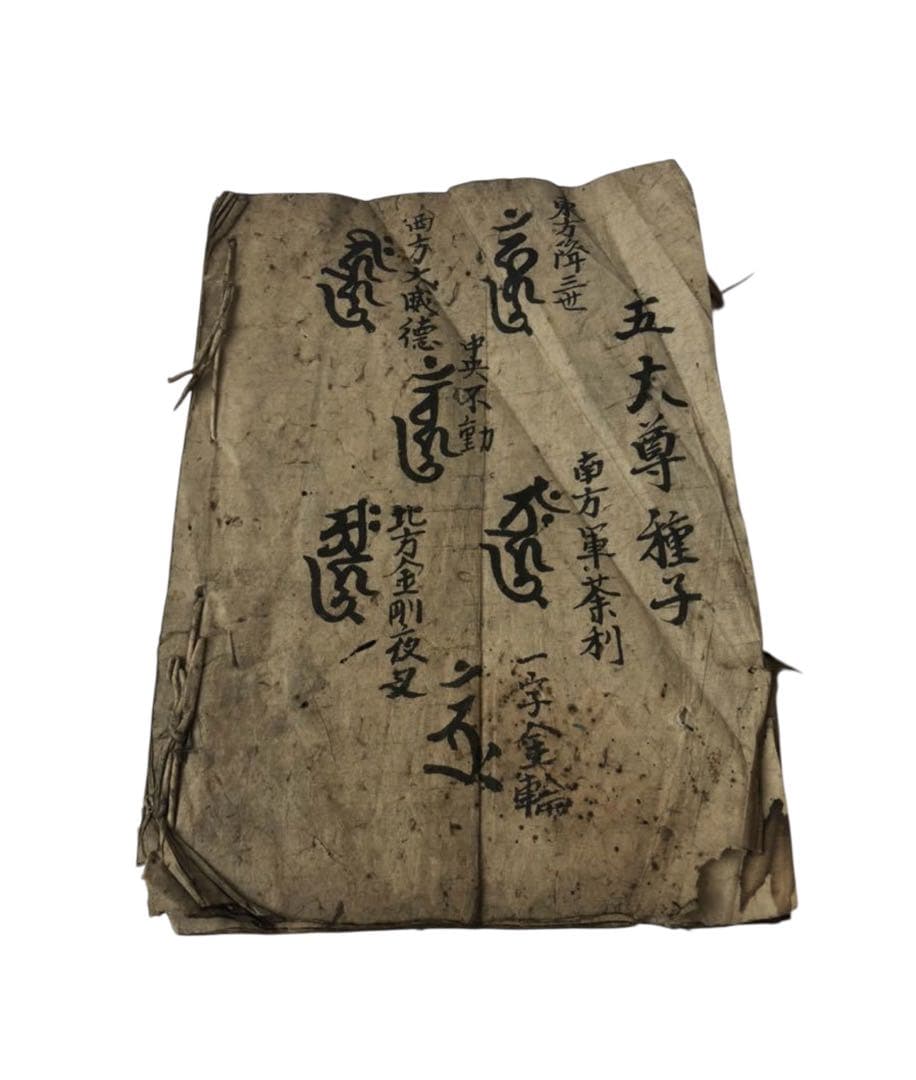 五大尊種子
東方降三世
南方軍荼利
中央不動
一字金輪
西方大威德
北方金剛夜叉